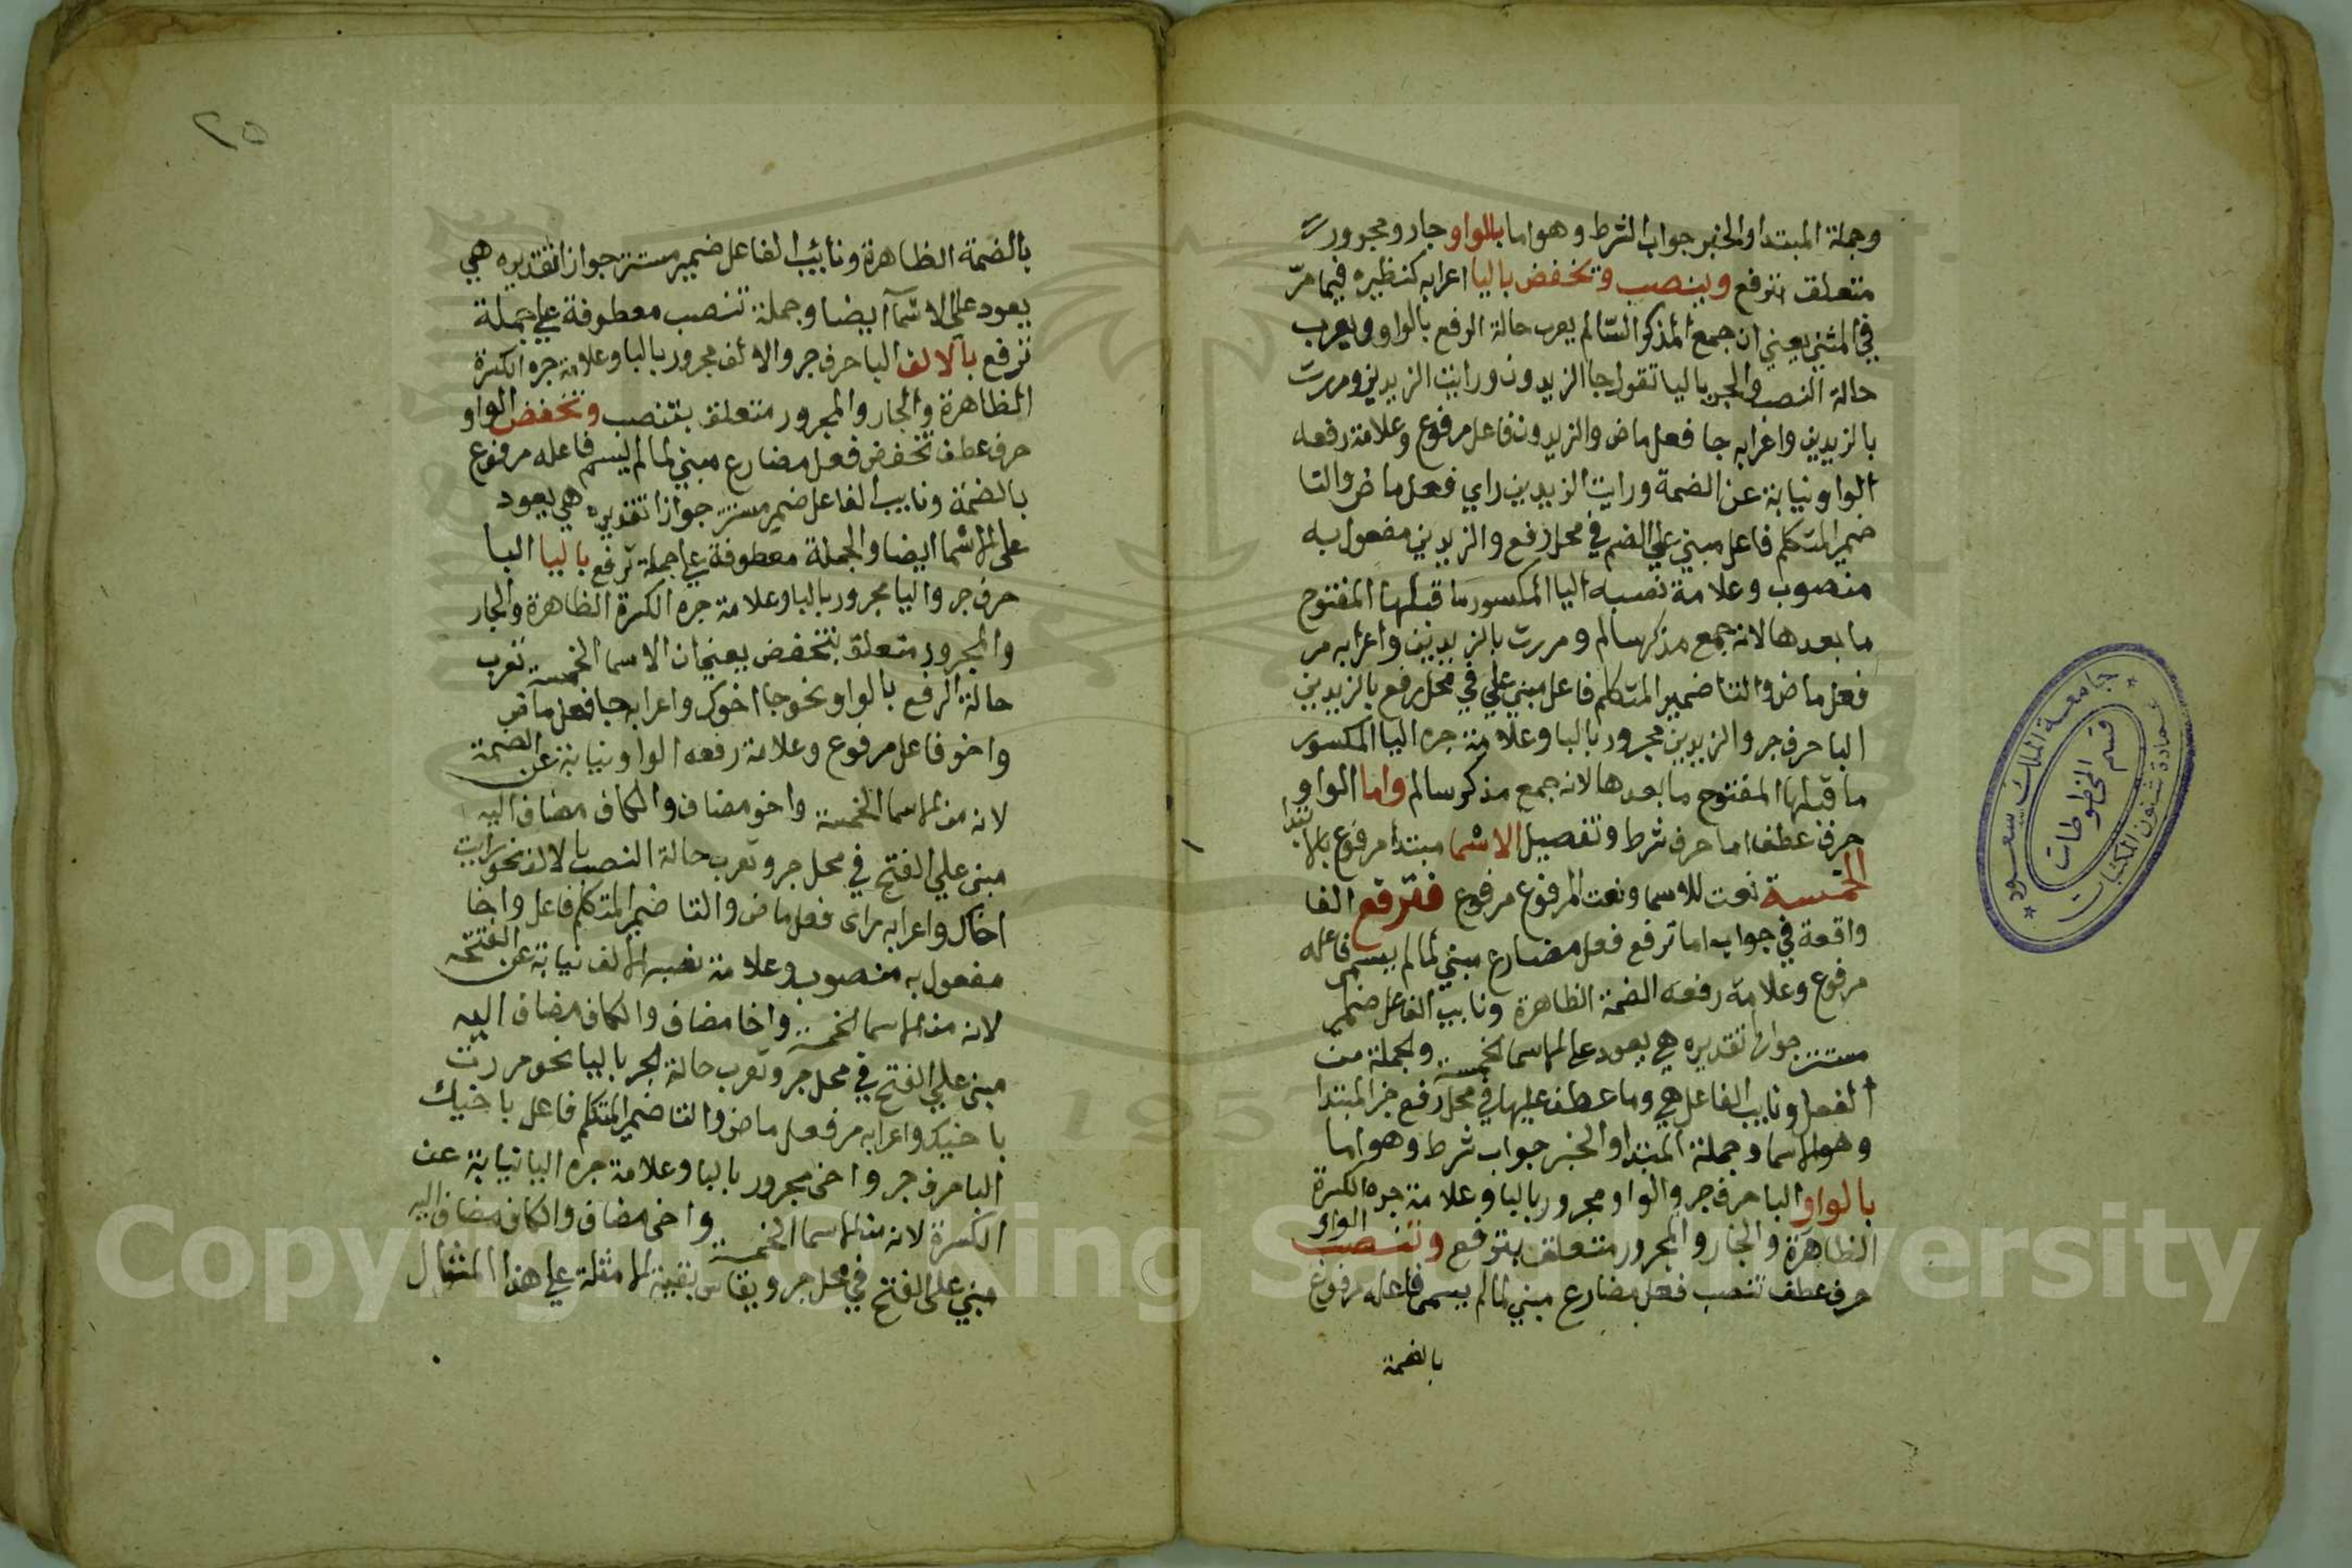 وجملة المبتدا والخبر جواب الشرط وهو اما بالواو جار ومجرور
متعلق بترفع وينصب وتخفض باليا اعرابه كنظيره فيما مرّ
في المثني يعني ان جمع المذكر السّالم يعرب حالة الرفع بالواو ويعرب
حالة النصب والجر باليا تقول جا الزيدون ورايت الزيدين ومررت
بالزيدين واعرابه جا فعل ماض والزيدون فاعل مرفوع وعلامة رفعه
الواو نيابة عن الضمة ورايت الزيدين راي فعل ماض والتا
ضمير المتكلم فاعل مبني علي الضم في محل رفع والزيدين مفعول به
منصوب وعلامة نصبه اليا المكسور ما قبلها المفتوح
ما بعدها لانه جمع مذكر سالم ومررت بالزيدين واعرابه مر
فعل ماض والتا ضمير المتكلم فاعل مبني علي في محل رفع بالزيدين
البا حرف جر والزيدين مجرور بالبا وعلامة جره اليا المكسور
ما قبلها المفتوح ما بعدها لانه جمع مذكر سالم واما الواو
حرف عطف اما حرف شرط وتفصيل الاسما مبتدا مرفوع بالابتدا
الخمسة نعت للاسما ونعت المرفوع مرفوع فترفع الفا
واقعة في جواب اما ترفع فعل مضارع مبني لما لم يسمى فاعله
مرفوع وعلامة رفعه الضمة الظاهرة ونايب الفاعل ضمير
مستتر جوازا تقديره هي يعود علي الاسما الخمسة والجملة من
الفعل ونايب الفاعل هي وما عطف عليها في محل رفع خبر المبتدا
وهو الاسما وجملة المبتدا والخبر جواب شرط وهو اما
بالواو البا حرف جر والواو مجرور بالبا وعلامة جره الكسرة
الظاهرة والجار والمجرور متعلق بترفع وتنصب الواو
حرف عطف تنصب فعل مضارع مبني لما لم يسمى فاعله مرفوع
بالضمة
جامعة الملك سعود
قسم المخطوطات
عمادة شئون المكتبات
٢٥
بالضمة الظاهرة ونائب الفاعل ضمير مستتر جوازا تقديره هي
يعود علي الاسمآ ايضا وجملة تنصب معطوفة علي جملة
ترفع بالالف البا حرف جر والالف مجرور بالبا وعلامة جره الكسرة
الظاهرة والجار والمجرور متعلق بتنصب وتخفض الواو
حرف عطف تخفض فعل مضارع مبني لما لم يسم فاعله مرفوع
بالضمة ونايب الفاعل ضمير مستتر جوازا تقديره هي يعود
علي الاسما ايضا والجملة معطوفة علي جملة ترفع باليا البا
حرف جر واليا مجرور بالبا وعلامة جره الكسرة الظاهرة والجار
والمجرور متعلق بتخفض يعني ان الاسما الخمسة تعرب
حالة الرفع بالواو نحو جا اخوك واعرابه جا فعل ماض
واخو فاعل مرفوع وعلامة رفعه الواو نيابة عن الضمة
لانه من الاسما الخمسة واخو مضاف والكاف مضاف اليه
مبني علي الفتح في محل جر وتعرب حالة النصب بالالف نحو رايت
اخاك واعرابه راى فعل ماض والتا ضمير المتكلم فاعل واخا
مفعول به منصوب وعلامة نصبه الالف نيابة عن الفتحة
لانه من الاسما الخمسة واخا مضاف والكاف مضاف اليه
مبني علي الفتح في محل جر وتعرب حالة الجر باليا نحو مررت
باخيك واعرابه مر فعل ماض والتا ضمير المتكلم فاعل باخيك
البا حرف جر واخي مجرور بالبا وعلامة جره اليا نيابة عن
الكسرة لانه من الاسما الخمسة واخي مضاف والكاف مضاف اليه
مبني علي الفتح في محل جر ويقاس بقية الامثلة علي هذا المثال
1957
Copyright © King Saud University